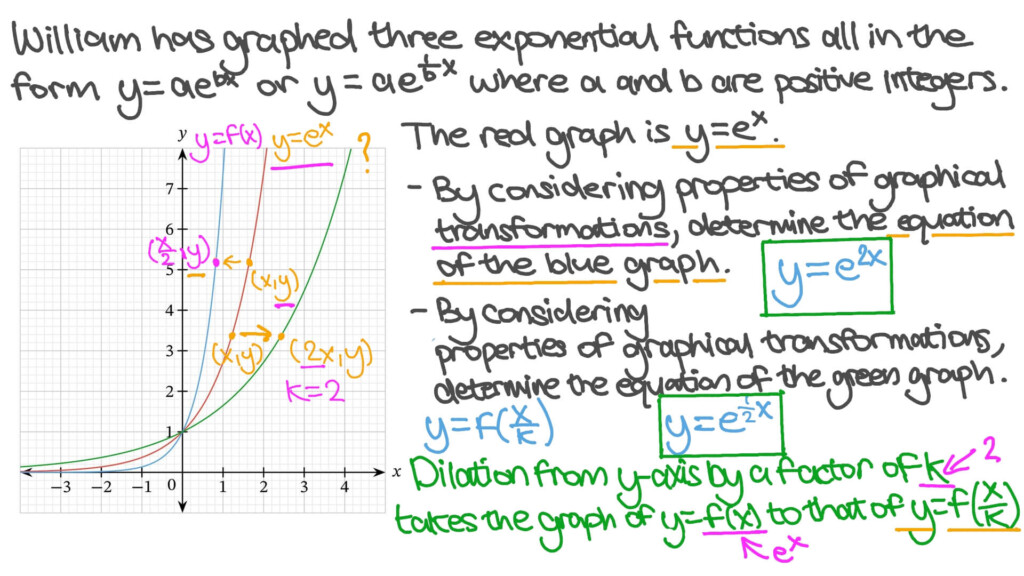 William has graphed three exponential functions all in the
form y=ae^{bx} or y=ae^{\frac{1}{b}x} where a and b are positive integers.
The red graph is y=e^x.
- By considering properties of graphical
transformations, determine the equation
of the blue graph.
y=e^{2x}
- By considering
properties of graphical transformations,
determine the equation of the green graph.
y=f(\frac{x}{k})
y=e^{\frac{1}{2}x}
Dilation from y-axis by a factor of k ← 2
takes the graph of y=f(x) to that of y=f(\frac{x}{k})
e^x
y
y=f(x)
y=e^x
?
7
6
(\frac{x}{2}, y)
5
(x,y)
4
3
(x,y)
(2x,y)
k=2
2
1
-3 -2 -1 0 1 2 3 4 x